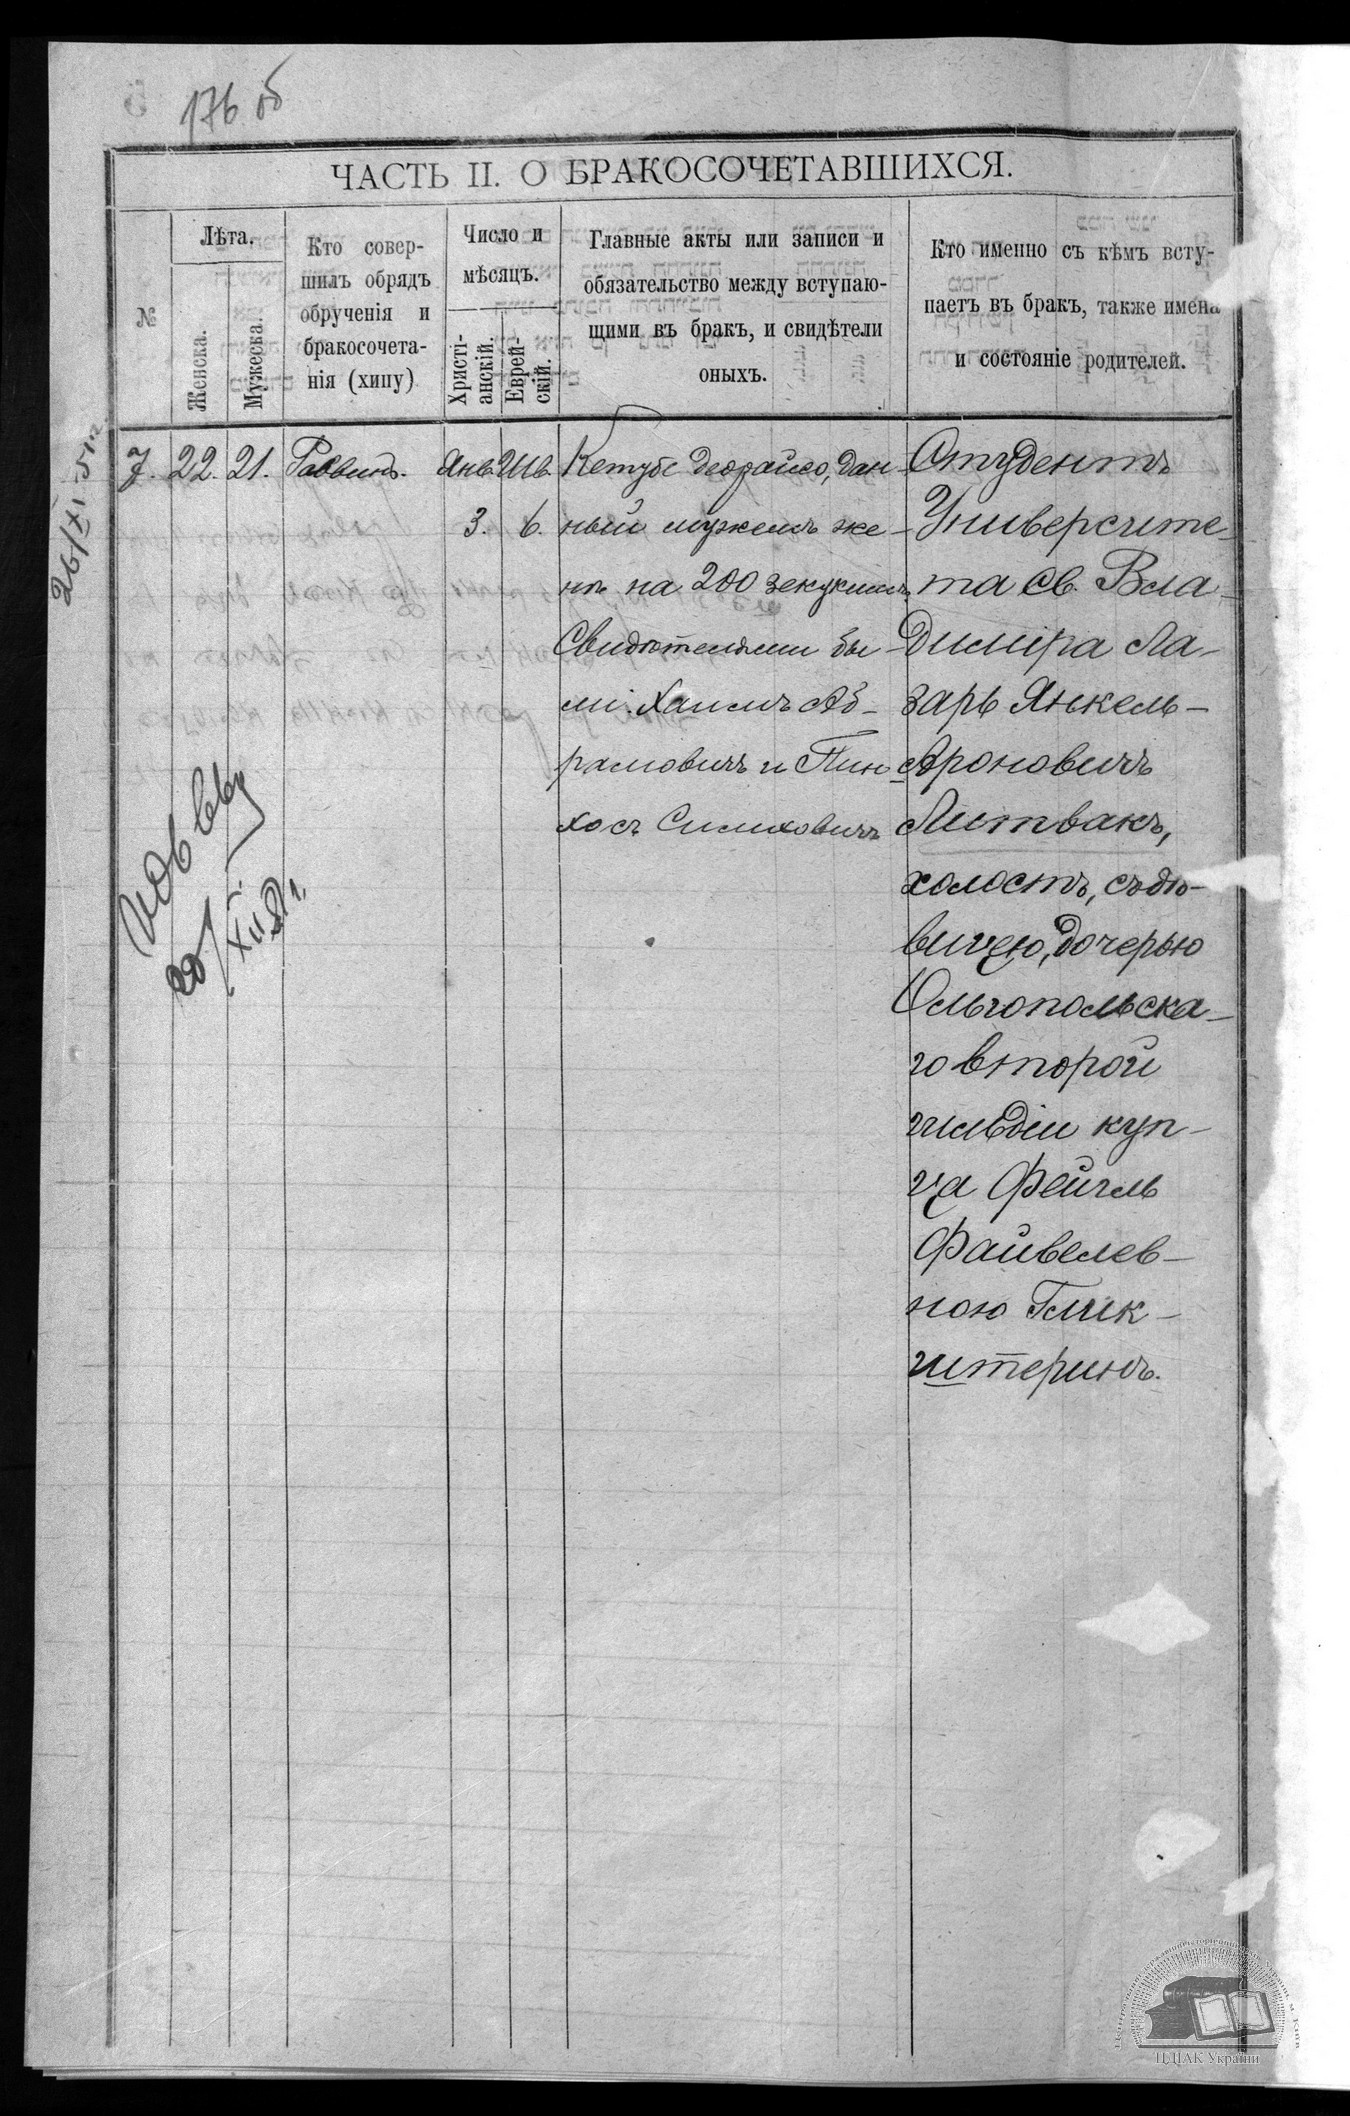 176 об
ЧАСТЬ II. О БРАКОСОЧЕТАВШИХСЯ.
№
Лѣта.
Женска.
Мужеска.
Кто совер-
шилъ обрядъ
обрученія и
бракосочета-
нія (хипу)
Число и
мѣсяцъ.
Христі-
анскій.
Еврей-
скій.
Главные акты или записи и
обязательство между вступаю-
щими въ бракъ, и свидѣтели
оныхъ.
Кто именно съ кѣмъ всту-
паетъ въ бракъ, также имена
и состояніе родителей.
7. 22. 21. Раввинъ. Янв. Шв.
3. 6.
Кетубе деорайсо, дан-
ный мужемъ же-
нѣ на 200 зекукимъ.
Свидѣтелями бы-
ли: Хаимъ Аб-
рамовичъ и Пин-
хосъ Симховичъ
Студентъ
Университе-
та Св. Вла-
диміра Ла-
зарь Янкель-
Ароновичъ
Литвакъ,
холостъ, съ дѣ-
вицею, дочерью
Ольгопольска-
го второй
гильдіи куп-
ца Фейгль
Файвелев-
ною Глик-
штернъ.
26/XI
20/XII
ЦДІАК України